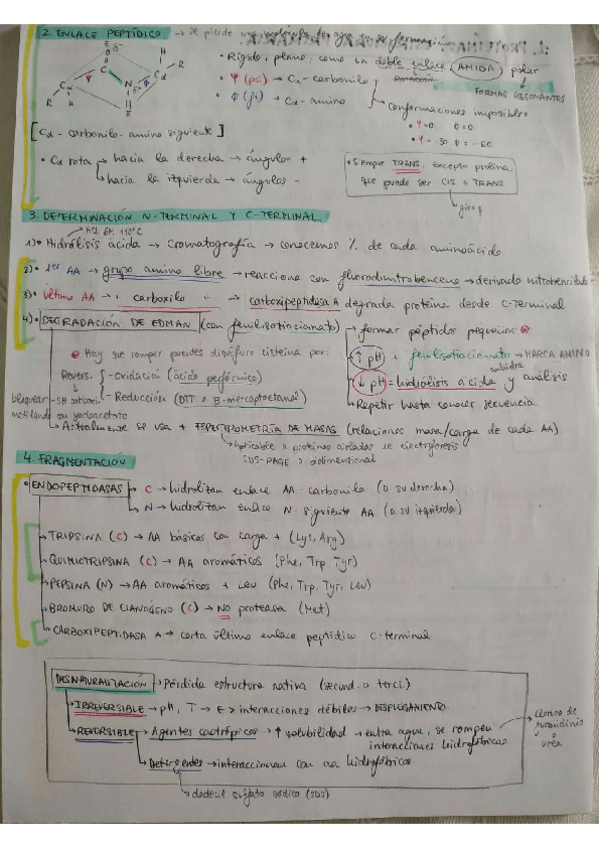 2. ENLACE PEPTÍDICO → se pierde una molécula de agua en su formación
• Rígido, plano, como un doble enlace (AMIDA) polar
FORMAS RESONANTES
• Ψ (psi) → Cα - carbonilo
• Φ (fi) → Cα - amino
Conformaciones imposibles
• Ψ=0 Φ=0
O
C
Cα
N
H
R
Ψ
Φ
[Cα - carbonilo - amino siguiente]
• Cα rota → hacia la derecha → ángulos +
hacia la izquierda → ángulos -
• Siempre TRANS, excepto prolina,
que puede ser CIS o TRANS
3. DETERMINACIÓN N-TERMINAL Y C-TERMINAL
HCl 6M, 110ºC
1) • Hidrólisis ácida → Cromatografía → conocemos % de cada aminoácido
2) • 1er AA → grupo amino libre → reacciona con fluorodinitrobenceno → derivado
3) • Último AA → " carboxilo " → carboxipeptidasa A degrada proteína desde C-terminal
4) • DEGRADACIÓN DE EDMAN (con fenilisotiocianato) → formar péptidos pequeños
Hay que romper puentes disulfuro cisteína por:
↑ pH + fenilisotiocianato → MARCA AMINO
Revers. - Oxidación (ácido perfórmico)
↓ pH = hidrólisis ácida y análisis
bloquear -SH
- Reducción (DTT o B-mercaptoetanol)
Repetir hasta conocer secuencia.
metilando
Actualmente se usa + ESPECTROMETRÍA DE MASAS (relaciones masa/carga de cada AA)
Aplicable a proteínas aisladas de electroforesis
SDS-PAGE o bidimensional
4. FRAGMENTACIÓN
• ENDOPEPTIDASAS → C → hidrolizan enlace AA - carbonilo (a su derecha)
N → hidrolizan enlace N - siguiente AA (a su izquierda)
TRIPSINA (C) → AA básicos con carga + (Lys, Arg)
QUIMIOTRIPSINA (C) → AA aromáticos (Phe, Trp Tyr)
PEPSINA (N) → AA aromáticos + Leu (Phe, Trp, Tyr, Leu)
BROMURO DE CIANÓGENO (C) → NO proteasa (Met)
CARBOXIPEPTIDASA A → corta último enlace peptídico C-terminal
DESNATURALIZACIÓN → Pérdida estructura nativa (secund. o terci.)
IRREVERSIBLE → pH, T → E > interacciones débiles → DESPLEGAMIENTO
REVERSIBLE → Agentes caotrópicos → ↑ solubilidad → entra agua, se rompen
interacciones hidrofóbicas
Cloruro de
guanidinio
o
urea
Detergentes → interaccionan con aa hidrofóbicos
dodecil sulfato sódico (SDS)